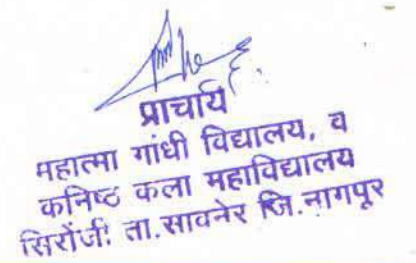 प्राचार्य
महात्मा गांधी विद्यालय, व
कनिष्ठ कला महाविद्यालय
सिरोंजी ता.सावनेर जि.नागपूर